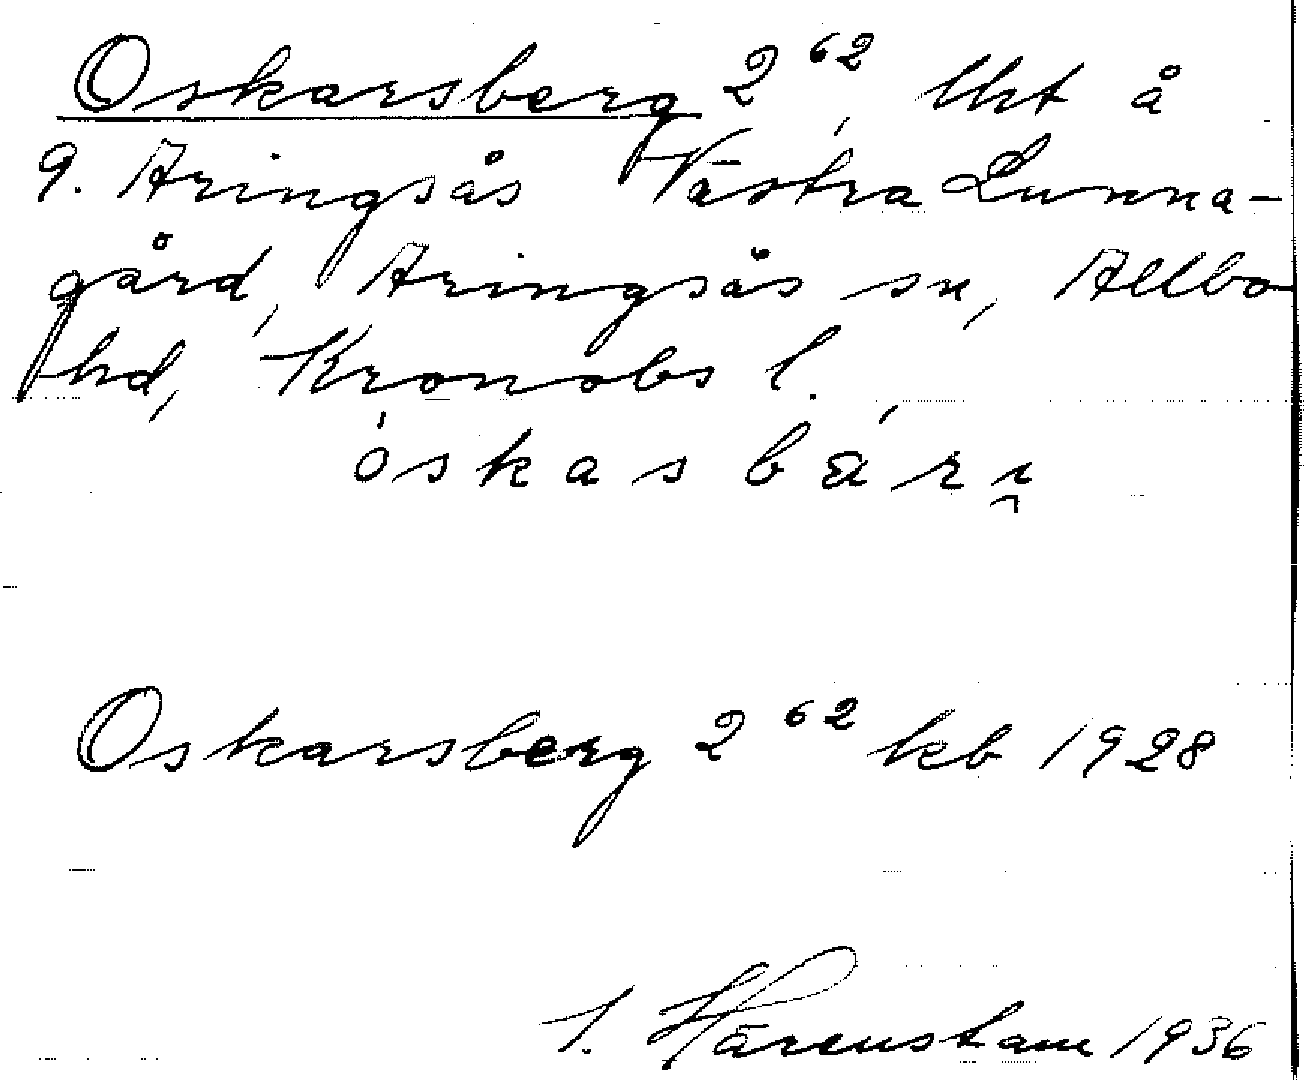 Oskarsberg 2⁶², lht å
9. Aringsås Västra Lunna-
gård, Aringsås sn, Allbo
hd, Kronobs l.
óskasbä́rı̯
Oskarsberg 2⁶² kb 1928
S. Härenstam 1936